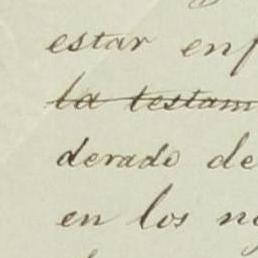 estar enf
la testam
derado de
en los no